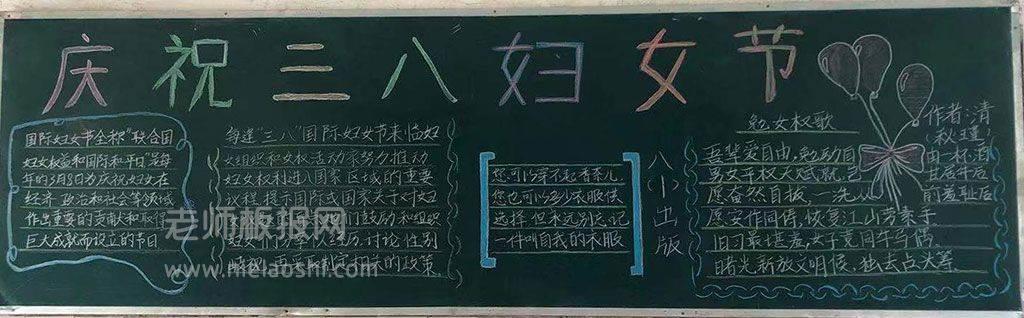 庆祝三八妇女节
国际妇女节全称"联合国
妇女权益和国际和平日"是每
年的3月8日为庆祝妇女在
经济 政治和社会等领域
作出重要的贡献和取得
巨大成就而设立的节日
每逢"三八"国际妇女节来临妇
女组织和女权活动家努力推动
妇女权利进入国家区域的重要
议程 提示国际社国家关于
们鼓励和组织
妇女们分享认经历,讨论 性别
相关的政策
您可以穿不起香奈儿
您也可以多少衣服供
选择 但永远别忘记
一件叫自我的衣服
八(1)出版
勉女权歌
作者:清
(秋瑾)
吾辈爱自由,勉励自
由一杯酒
男女平权天赋就,岂
甘居牛后
愿奋然自拔,一洗从
前羞耻后
愿安作同俦,恢复江山劳素手
旧习最堪羞,女子竟同牛马偶
曙光新放文明侯,独去占头筹
老师板报网
www.meiaoshi.com